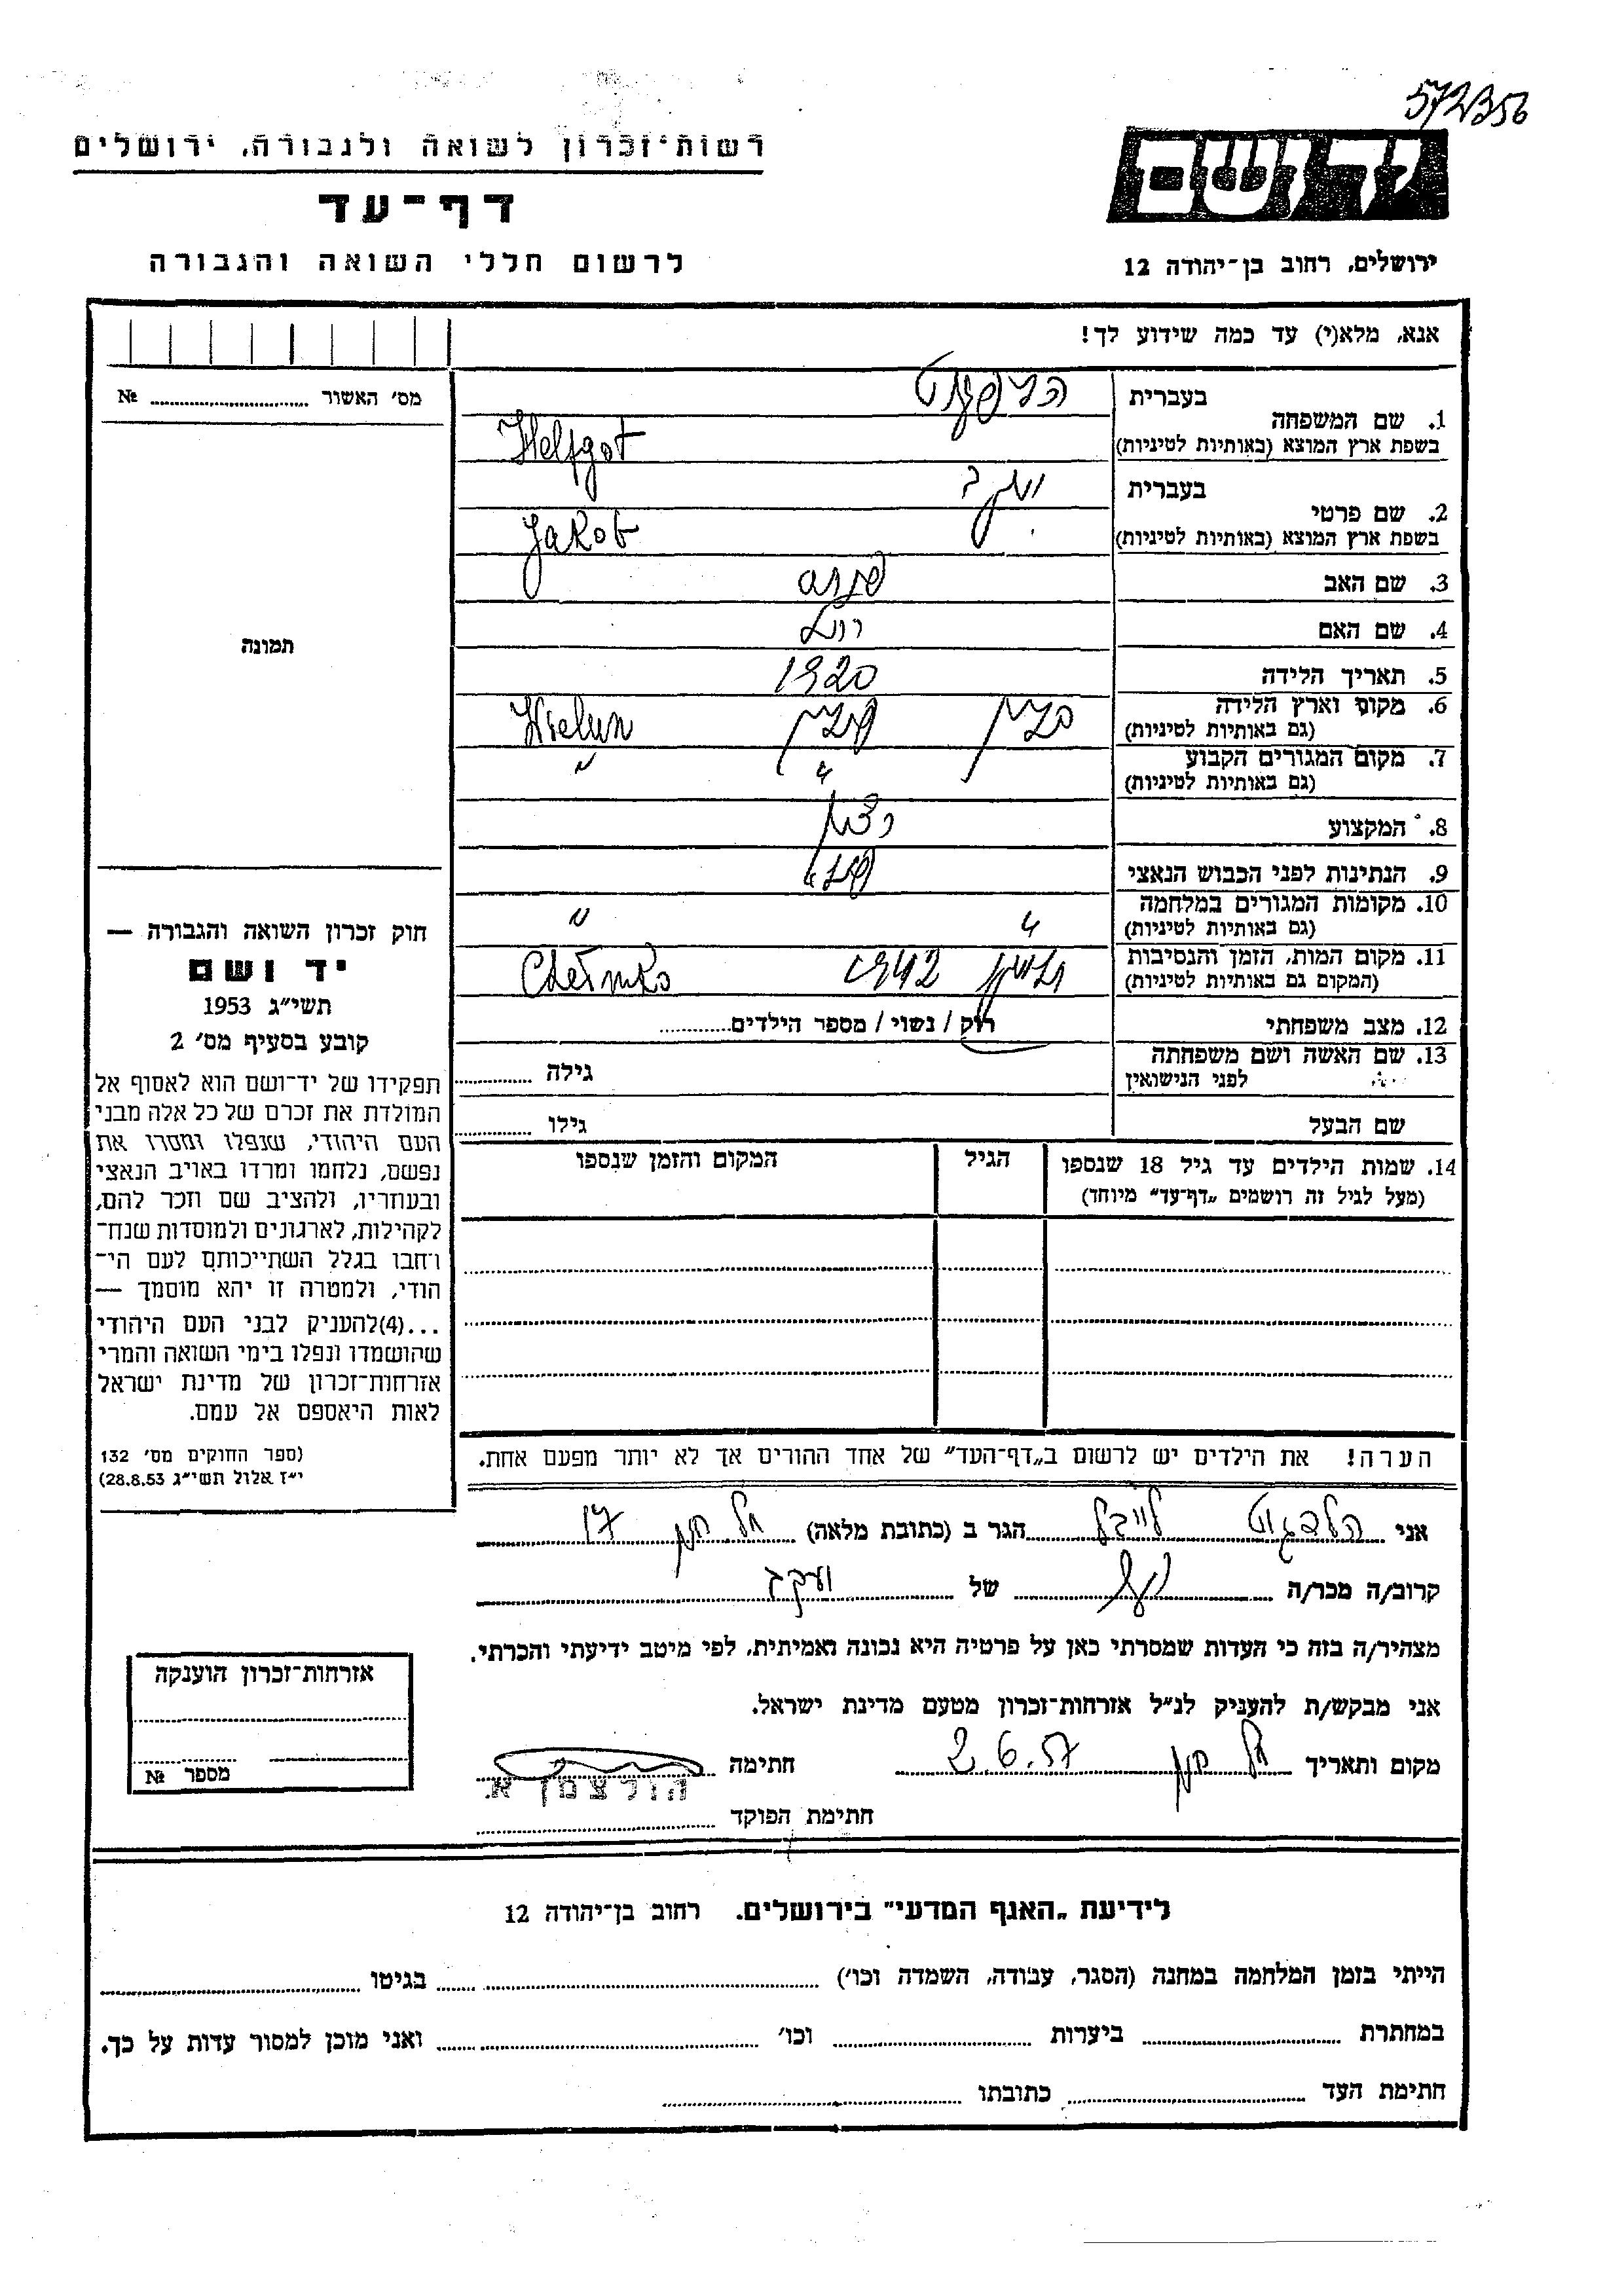 572356
רשות־זכרון לשואה ולגבורה, ירושלים
דף־עד
לרשום חללי השואה והגבורה
יד ושם
ירושלים, רחוב בן־יהודה 12
אנא, מלא(י) עד כמה שידוע לך!
מס׳ האשור ........ №
בעברית
1. שם המשפחה
בשפת ארץ המוצא (באותיות לטיניות) Helfgot
בעברית יעקב
2. שם פרטי
בשפת ארץ המוצא (באותיות לטיניות) Jakob
3. שם האב
4. שם האם
5. תאריך הלידה 1920
6. מקום וארץ הלידה פולין Wielun
(גם באותיות לטיניות)
7. מקום המגורים הקבוע " "
(גם באותיות לטיניות)
8. המקצוע
9. הנתינות לפני הכבוש הנאצי
10. מקומות המגורים במלחמה " "
(גם באותיות לטיניות)
11. מקום המות, הזמן והנסיבות 1942
(המקום גם באותיות לטיניות)
12. מצב משפחתי רוק / נשוי / מספר הילדים........
13. שם האשה ושם משפחתה
לפני הנישואין גילה ........
שם הבעל גילו ........
14. שמות הילדים עד גיל 18 שנספו הגיל המקום והזמן שנספו
(מעל לגיל זה רושמים „דף־עד” מיוחד)
תמונה
חוק זכרון השואה והגבורה —
יד ושם
תשי״ג 1953
קובע בסעיף מס׳ 2
תפקידו של יד־ושם הוא לאסוף אל
המולדת את זכרם של כל אלה מבני
העם היהודי, שנפלו ומסרו את
נפשם, נלחמו ומרדו באויב הנאצי
ובעוזריו, ולהציב שם וזכר להם,
לקהילות, לארגונים ולמוסדות שנח־
רבו בגלל השתייכותם לעם הי־
הודי, ולמטרה זו יהא מוסמך —
...(4)להעניק לבני העם היהודי
שהושמדו ונפלו בימי השואה והמרי
אזרחות־זכרון של מדינת ישראל
לאות היאספם אל עמם.
(ספר החוקים מס׳ 132
י״ז אלול תשי״ג 28.8.53)
הערה! את הילדים יש לרשום ב„דף־העד” של אחד ההורים אך לא יותר מפעם אחת.
אני הלפגוט לייבל הגר ב (כתובת מלאה) תל חנן 17
קרוב/ה מכר/ה של יעקב
מצהיר/ה בזה כי העדות שמסרתי כאן על פרטיה היא נכונה ואמיתית, לפי מיטב ידיעתי והכרתי.
אני מבקש/ת להעניק לנ״ל אזרחות־זכרון מטעם מדינת ישראל.
מקום ותאריך תל חנן 2.6.57 חתימה
הורצמן א.
חתימת הפוקד
אזרחות־זכרון הוענקה
מספר №
לידיעת „האגף המדעי” בירושלים. רחוב בן־יהודה 12
הייתי בזמן המלחמה במחנה (הסגר, עבודה, השמדה וכו׳) ........ בגיטו ........
במחתרת ........ ביערות ........ וכו׳ ........ ואני מוכן למסור עדות על כך.
חתימת העד ........ כתובתו ........